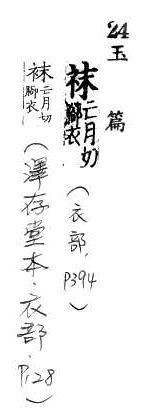 24
玉篇
袜亡月切脚衣(衣部,P394)
袜亡月切腳衣(澤存堂本·衣部·P128)